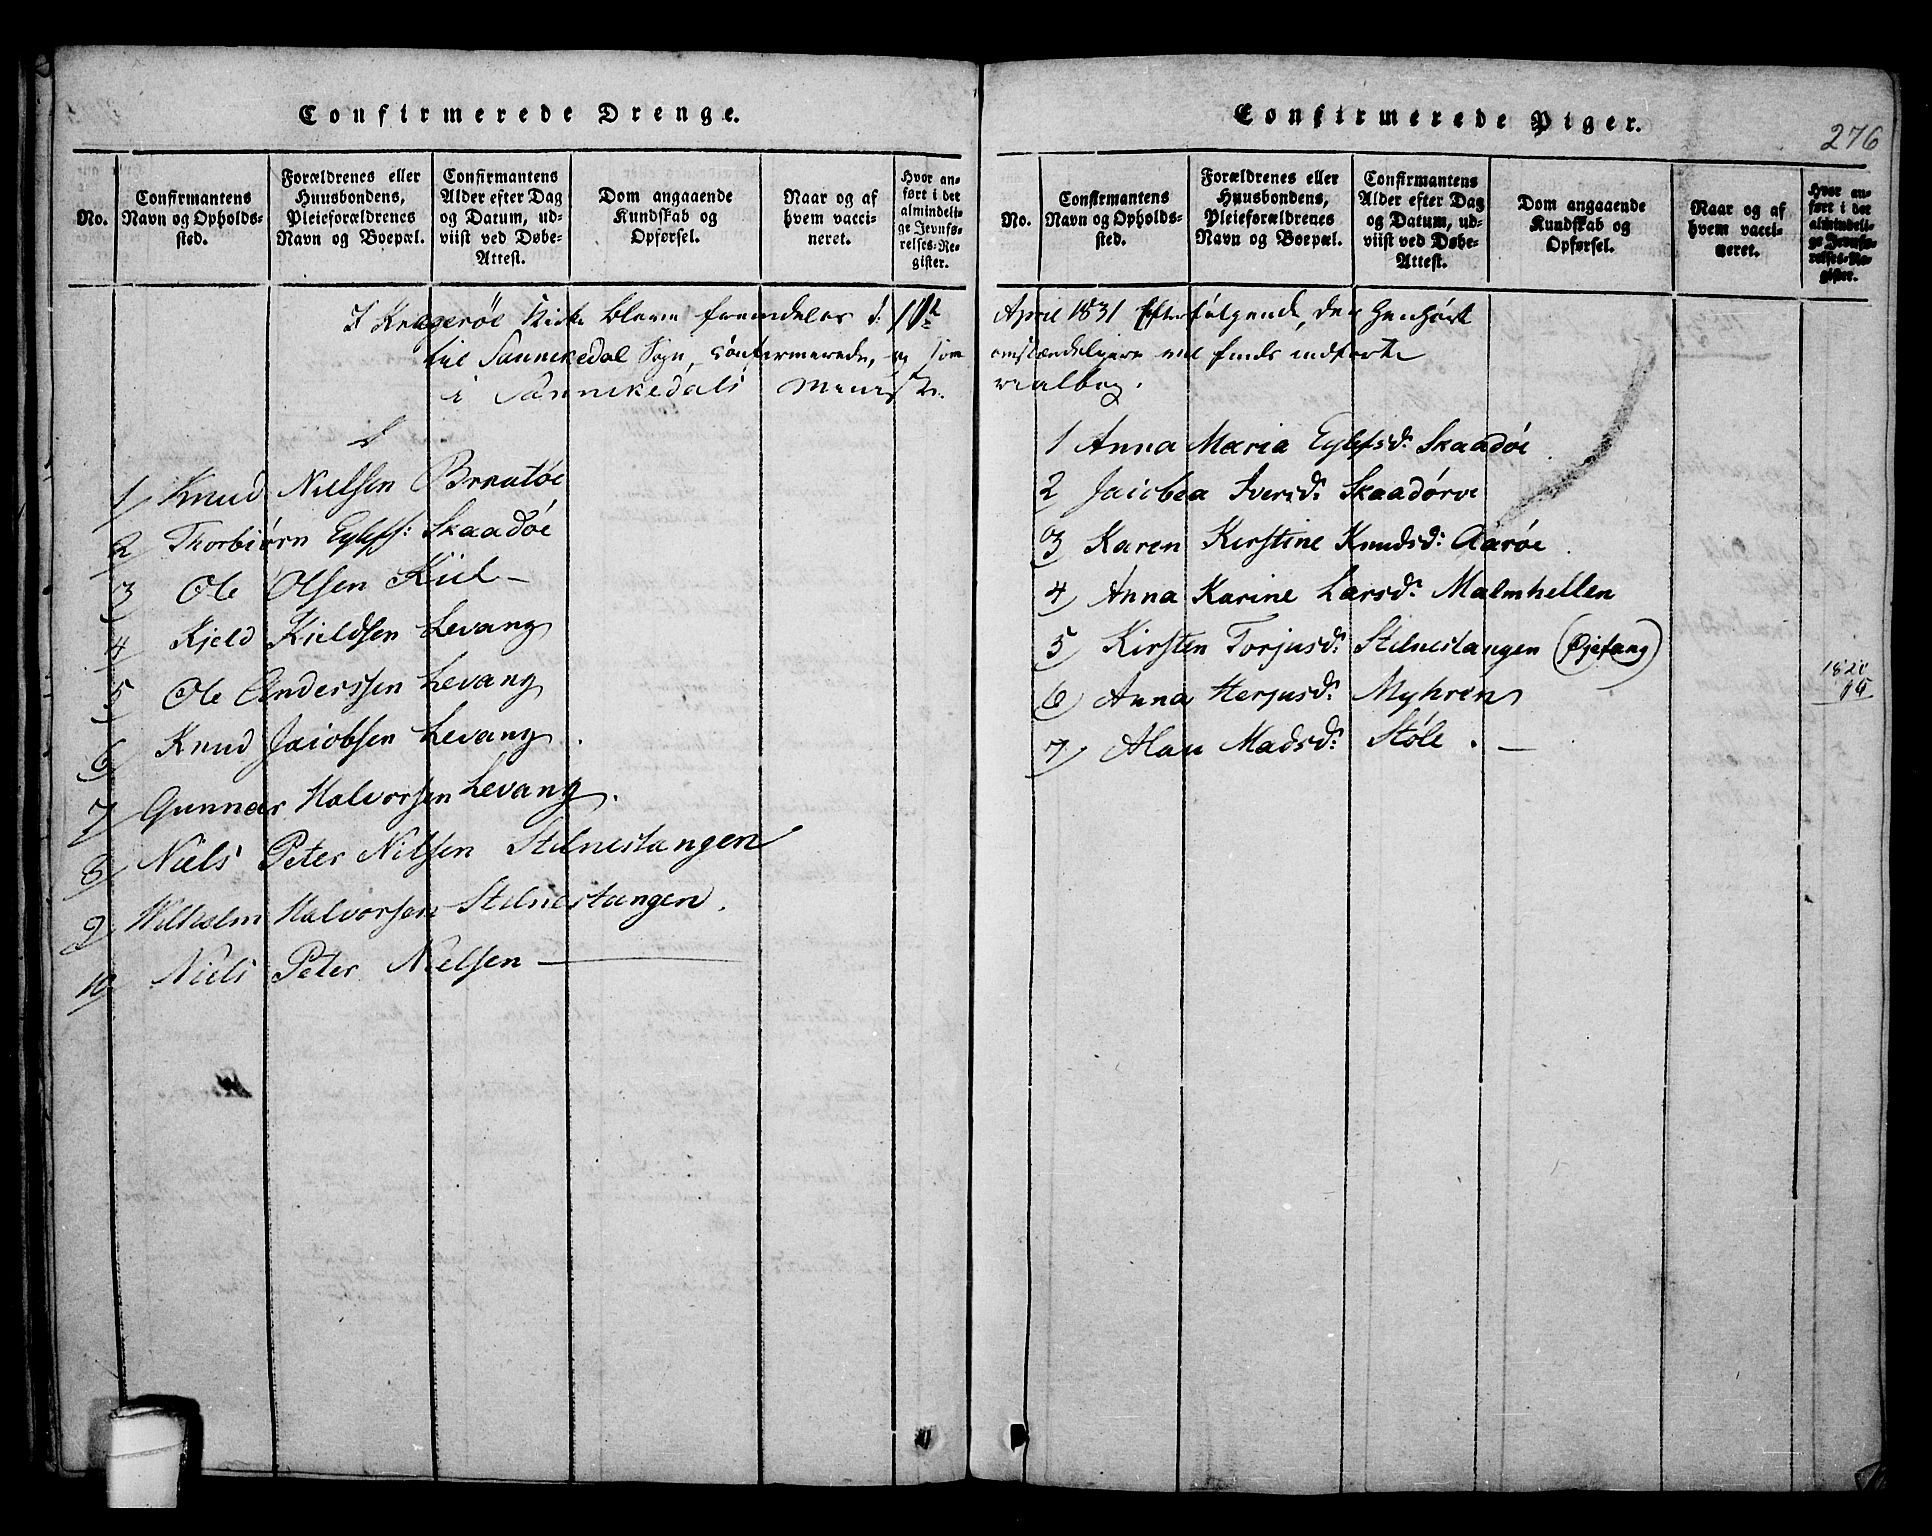 Confirmerede Drenge.
No.
Confirmantens
Navn og Opholds-
sted.
Forældrenes eller
Huusbondens,
Pleieforældrenes
Navn og Boepæl.
Confirmantens
Alder efter Dag
og Datum, ud-
viist ved Døbe-
Attest.
Dom angaaende
Kundskab og
Opførsel.
Naar og af
hvem vacci-
neret.
Hvor an-
ført i det
almindeli-
ge Jevnfø-
relses-Re-
gister.
I Kragerøe Kirke bleve fremdeles d:
til Sannikedal Sogn, confirmerede, og som
i Sannikedals Minist
1 Knud Nielsen Brratøe
2 Thorbiørn Eylefs: Skaadøe
3 Ole Olsen Kiil
4 Kjeld Kieldsen Levang
5 Ole Anderssen Levang
6 Knud Jacobsen Levang.
7 Gunnar Halvorsen Levang.
8 Niels Peter Nilsen Stilnestangen
9 Wilhelm Halvorsen Stilnestangen.
10 Niels Peter Nielsen
Confirmerede Piger.
276
No.
Confirmantens
Navn og Opholds-
sted.
Forældrenes eller
Huusbondens,
Pleieforældrenes
Navn og Boepæl.
Confirmantens
Alder efter Dag
og Datum, ud-
viist ved Døbe-
Attest.
Dom angaaende
Kundskab og
Opførsel.
Naar og af
hvem vacci-
neret.
Hvor an-
ført i det
almindeli-
ge Jevnfø-
relses-Re-
gister.
April 1831 Efterfølgende, der henhørt
omstændeligere vil findes indførte
rialbog.
1 Anna Maria Eylefsd: Skaadøe
2 Jacobea Iversd: Skaadøe
3 Karen Kirstine Knudsd: Aarøe.
4 Anna Karine Larsd: Malmhellen
5 Kirsten Torjusd: Stilnestangen (Øjefang)
6 Anna Herjusd: Myhren
7 Alau Madsd: Støle.